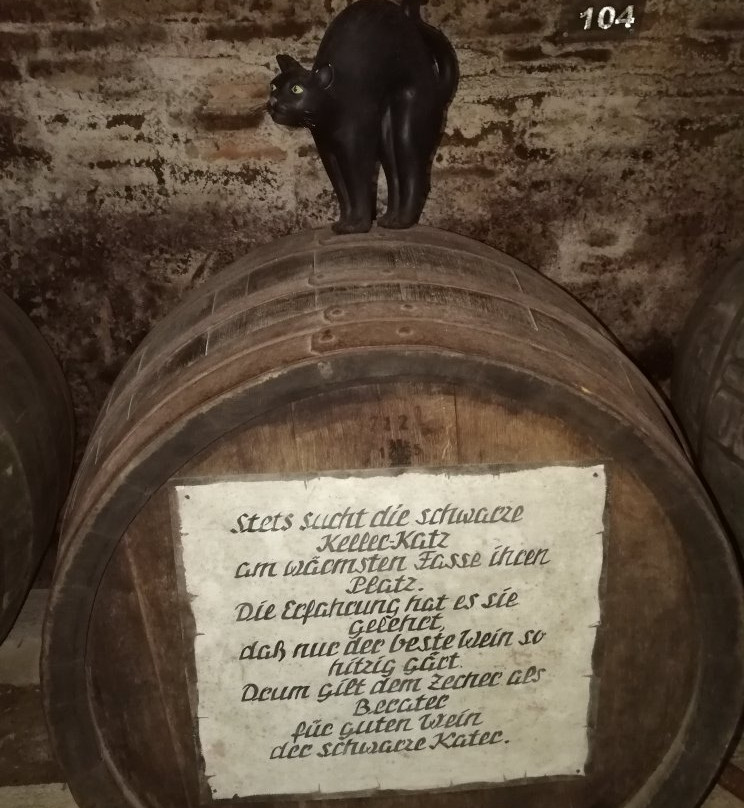 104
212 L
Stets sucht die schwarze
Keller-Katz
am wärmsten Fasse ihren
Platz.
Die Erfahrung hat es sie
gelehrt,
daß nur der beste Wein so
hitzig gärt.
Drum gilt dem Zecher als
Berater
für guten Wein
der schwarze Kater.